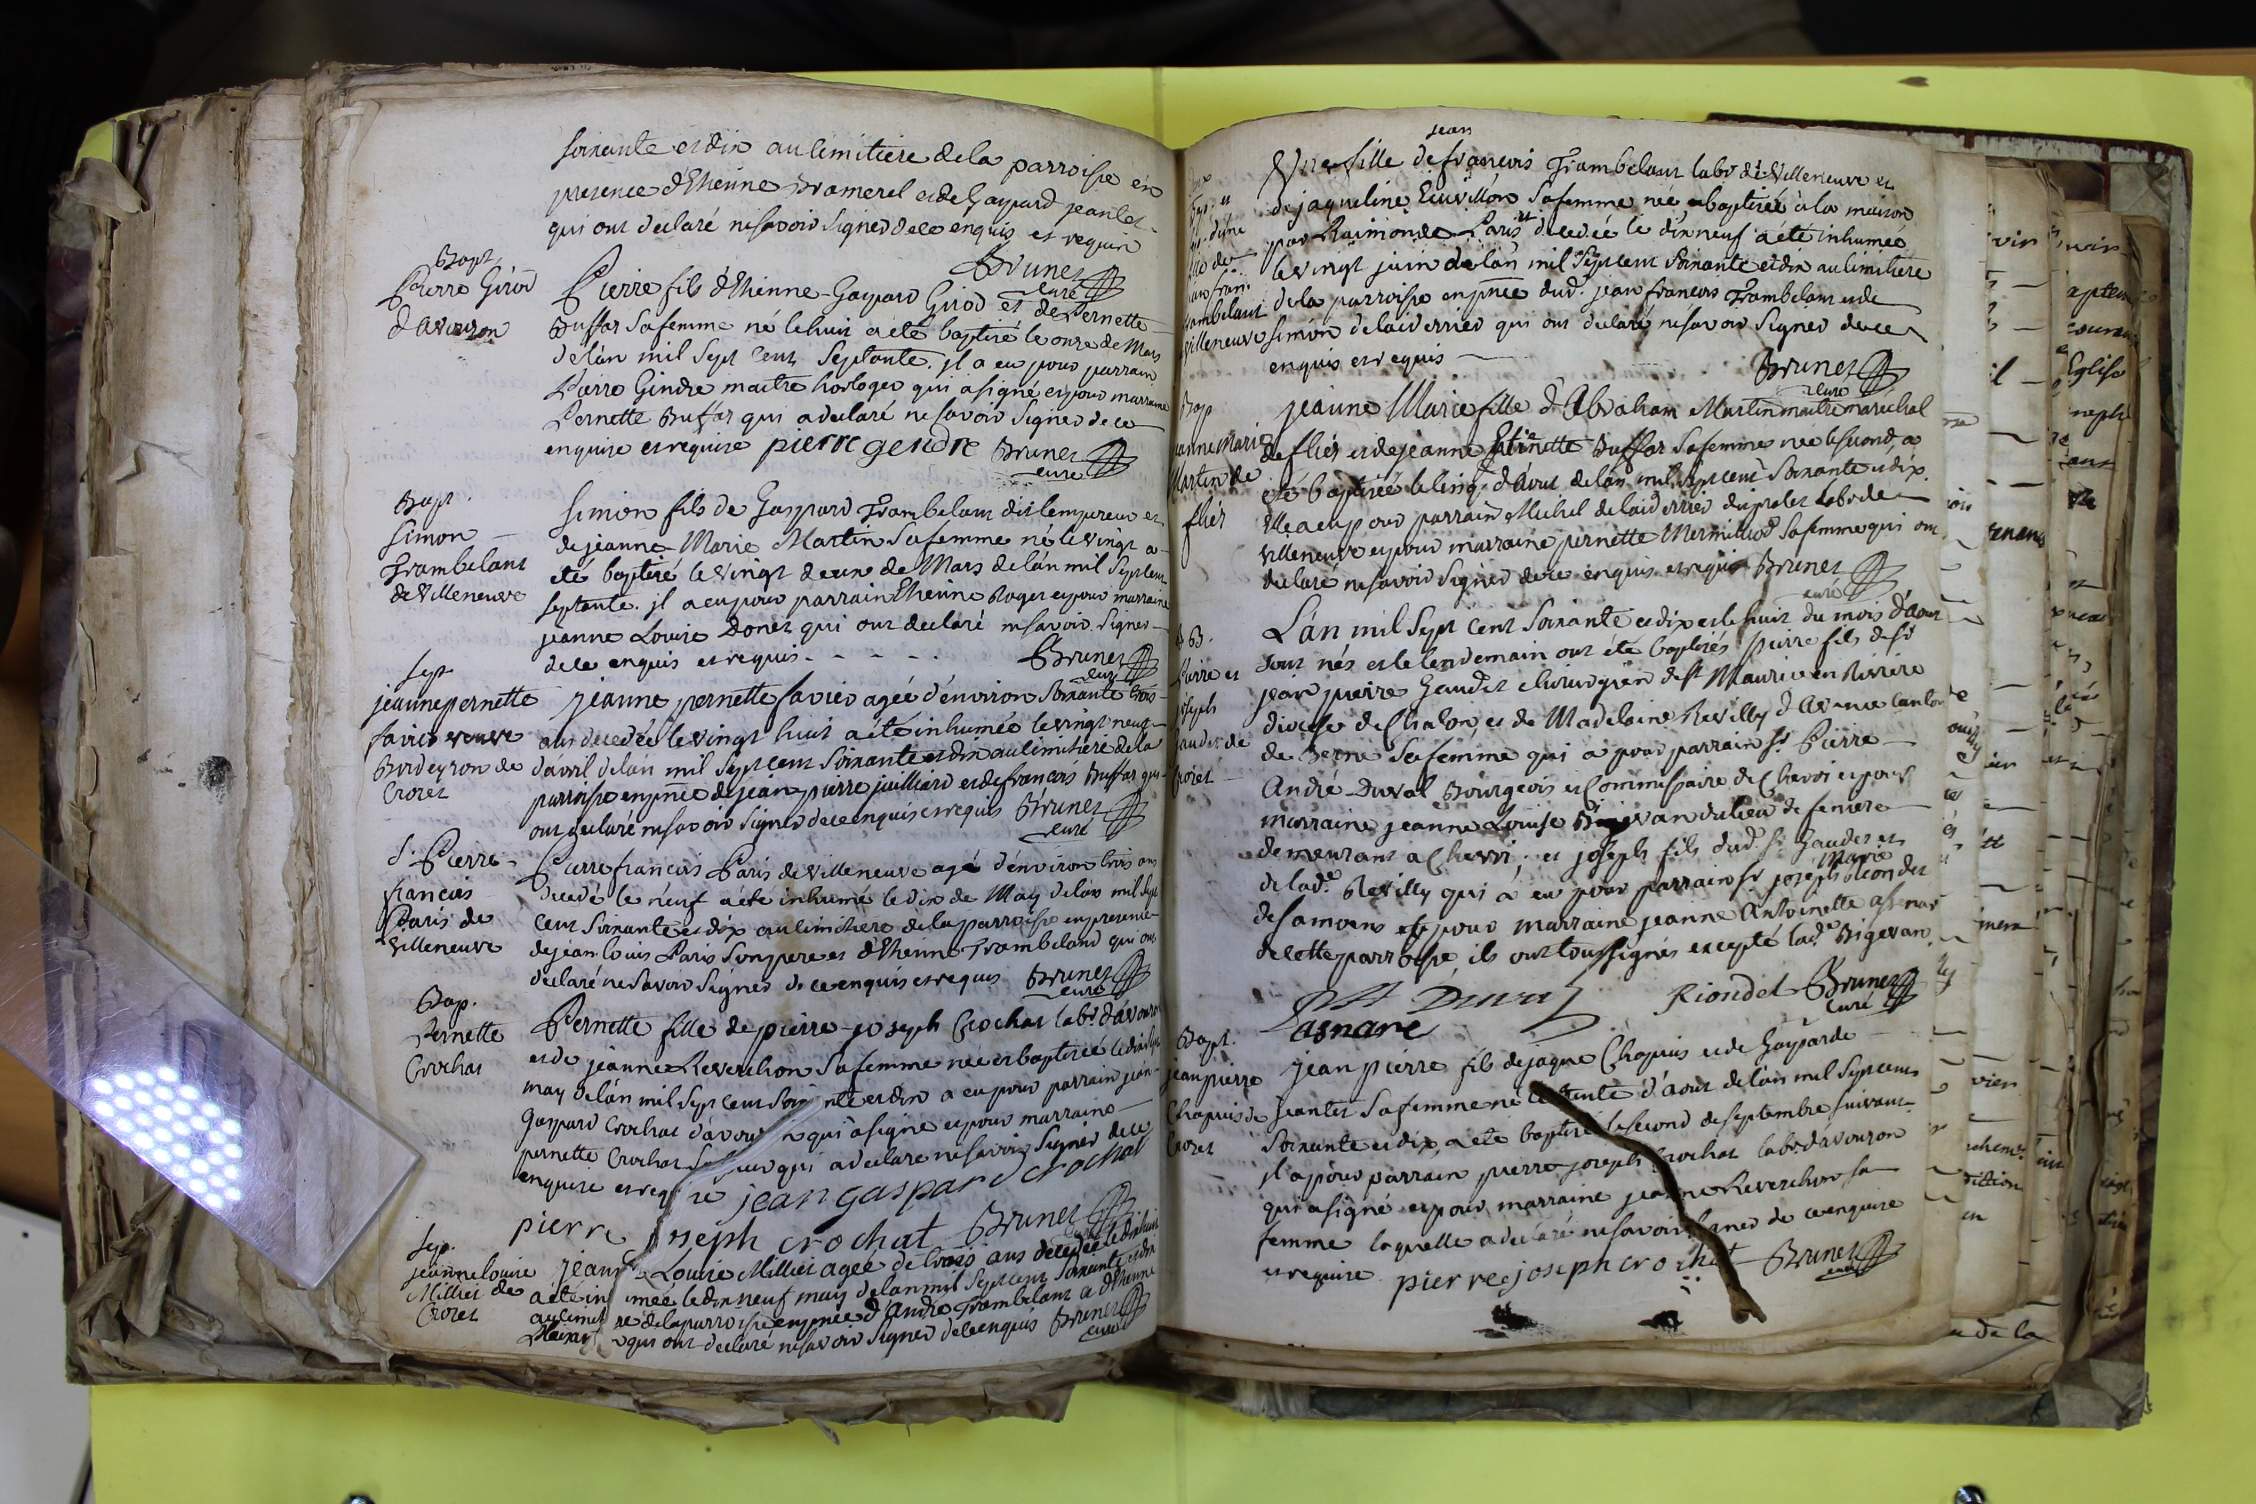 soixante et dix au cimitiere de la parroisse en
presence d'Ethienne Bramerel et de Gaspard jeantet
qui ont declaré ne savoir signer de ce enquis et requis
Brunet
curé
Bapt.
Pierre Girod
d'avouzon
Pierre fils d'Ethienne-Gaspard Girod et de Pernette
Buffar sa femme né le huit a été baptisé le onze de Mars
de l'an mil sept cent septante. il a eu pour parrain
Pierre Gindre maitre horloger qui a signé et pour marraine
Pernette Buffar qui a declaré ne savoir signer de ce
enquise et requise pierre gendre Brunet
curé
Bapt.
Simon
Trambelant
de Villeneuve
Simon fils de Gaspard Trambelant dit lempereur et
de jeanne Marie Martin sa femme né le vingt a
été baptisé le vingt deux de Mars de l'an mil sept cent
septante. il a eu pour parrain Ethienne Roger et pour marraine
jeanne Louise Donet qui ont declaré ne savoir signer
de ce enquis et requis - - - - - Brunet
curé
sep.
jeanne pernette
favier veuve
Burdeyron de
Crozet
jeanne pernette favier agée d'environ soixante trois
ans decedée le vingt huit a été inhumée le vingt neuf
d'avril de l'an mil sept cent soixante et dix au cimitiere de la
parroisse en pnce de jean pierre juilliard et de francois Buffar qui
ont declaré ne savoir signer de ce enquis et requis Brunet
curé
S. Pierre
francois
Paris de
Villeneuve
Pierre francois Paris de villeneuve agé d'environ trois ans
decedé le neuf a été inhumé le dix de May de l'an mil sept
cent soixante et dix au cimitiere de la parroisse en presence
de jean louis Paris son pere et d'Ethienne Trambeland qui ont
declaré ne savoir signer de ce enquis et requis Brunet
curé
Bap.
Pernette
Crochat
Pernette fille de pierre-joseph Crochat labr. d'avouzon
et de jeanne Reverchon sa femme née et baptisée le dix sept
may de l'an mil sept cent soixante et dix a eu pour parrain jean
Gaspard Crochat d'avouzon qui a signé et pour marraine
pernette Crochat sa soeur qui a declaré ne savoir signer de ce
enquise et requise jean gaspard crochat
pierre joseph crochat Brunet
curé
sep.
jeanne louise
Millet de
Crozet
jeanne Louise Milliet agée de trois ans decedée le dix huit
a été inhumée le dix neuf may de l'an mil sept cent soixante et dix
au cimitiere de la parroisse en pnce d'andré Trambelant et d'Ethienne
qui ont declaré ne savoir signer de ce enquis Brunet
curé
Bap. et
fille de
jean fran.
Trambelant
villeneuve
jean
Une fille de francois Trambelant labr de Villeneuve et
de jaqueline Emvillon sa femme née et baptisée à la maison
par Raimonde Paris et decedée le dix neuf a été inhumée
le vingt juin de l'an mil sept cent soixante et dix au cimitiere
de la parroisse en pnce dud. jean francois Trambelant et de
simon delaiderrier qui ont declaré ne savoir signer de ce
enquis et requis Brunet
curé
Bap
jeanne Marie
Martin de
flier
jeanne Marie fille d'Abraham Martin maitre maréchal
de flier et de jeanne Etinette Buffar sa femme née le second, a
été baptisée le cinq d'Aout de l'an mil sept cent soixante et dix.
elle a eu pour parrain Michel delaiderrier labr de
Villeneuve et pour marraine pernette Mermilliod sa femme qui ont
declaré ne savoir signer de ce enquis et requis Brunet
curé
B.
Pierre et
joseph
Gaudet de
Crozet
L'an mil sept cent soixante et dix et le huit du mois d'Aout
sont nés et le lendemain ont été baptisés Pierre fils de sr
jean pierre Gaudet chirurgien de st Maurice en Riviere
diocese de Chalon, et de Madelaine Revilly d'Avance canton
de Berne sa femme qui a pour parrain sr. Pierre
André Duval Bourgeois et Commissaire de Chevri et pour
marraine jeanne Louise Bigevan du lieu de feniere
demeurant a Chevri; et joseph fils dud. sr. Gaudet et
de lade. Revilly qui a eu pour parrain sr joseph Marie Riondet
de samoens et pour marraine jeanne Antoinette assenar
de cette parroisse, ils ont tous signés excepté lade. Bigevan
Duval Riondet Brunet
curé
asnare
Bapt.
jean pierre
Chapuis de
Crozet
jean pierre fils de jaque Chapuis et de Gasparde
jeantet sa femme né le trente d'aout de l'an mil sept cent
soixante et dix, a été baptisé le second de septembre suivant.
il a pour parrain pierre joseph Crochat labr. d'avouzon
qui a signé et pour marraine jeanne Reverchon sa
femme laquelle a declaré ne savoir signer de ce enquise
et requise pierre joseph crochat Brunet
curé